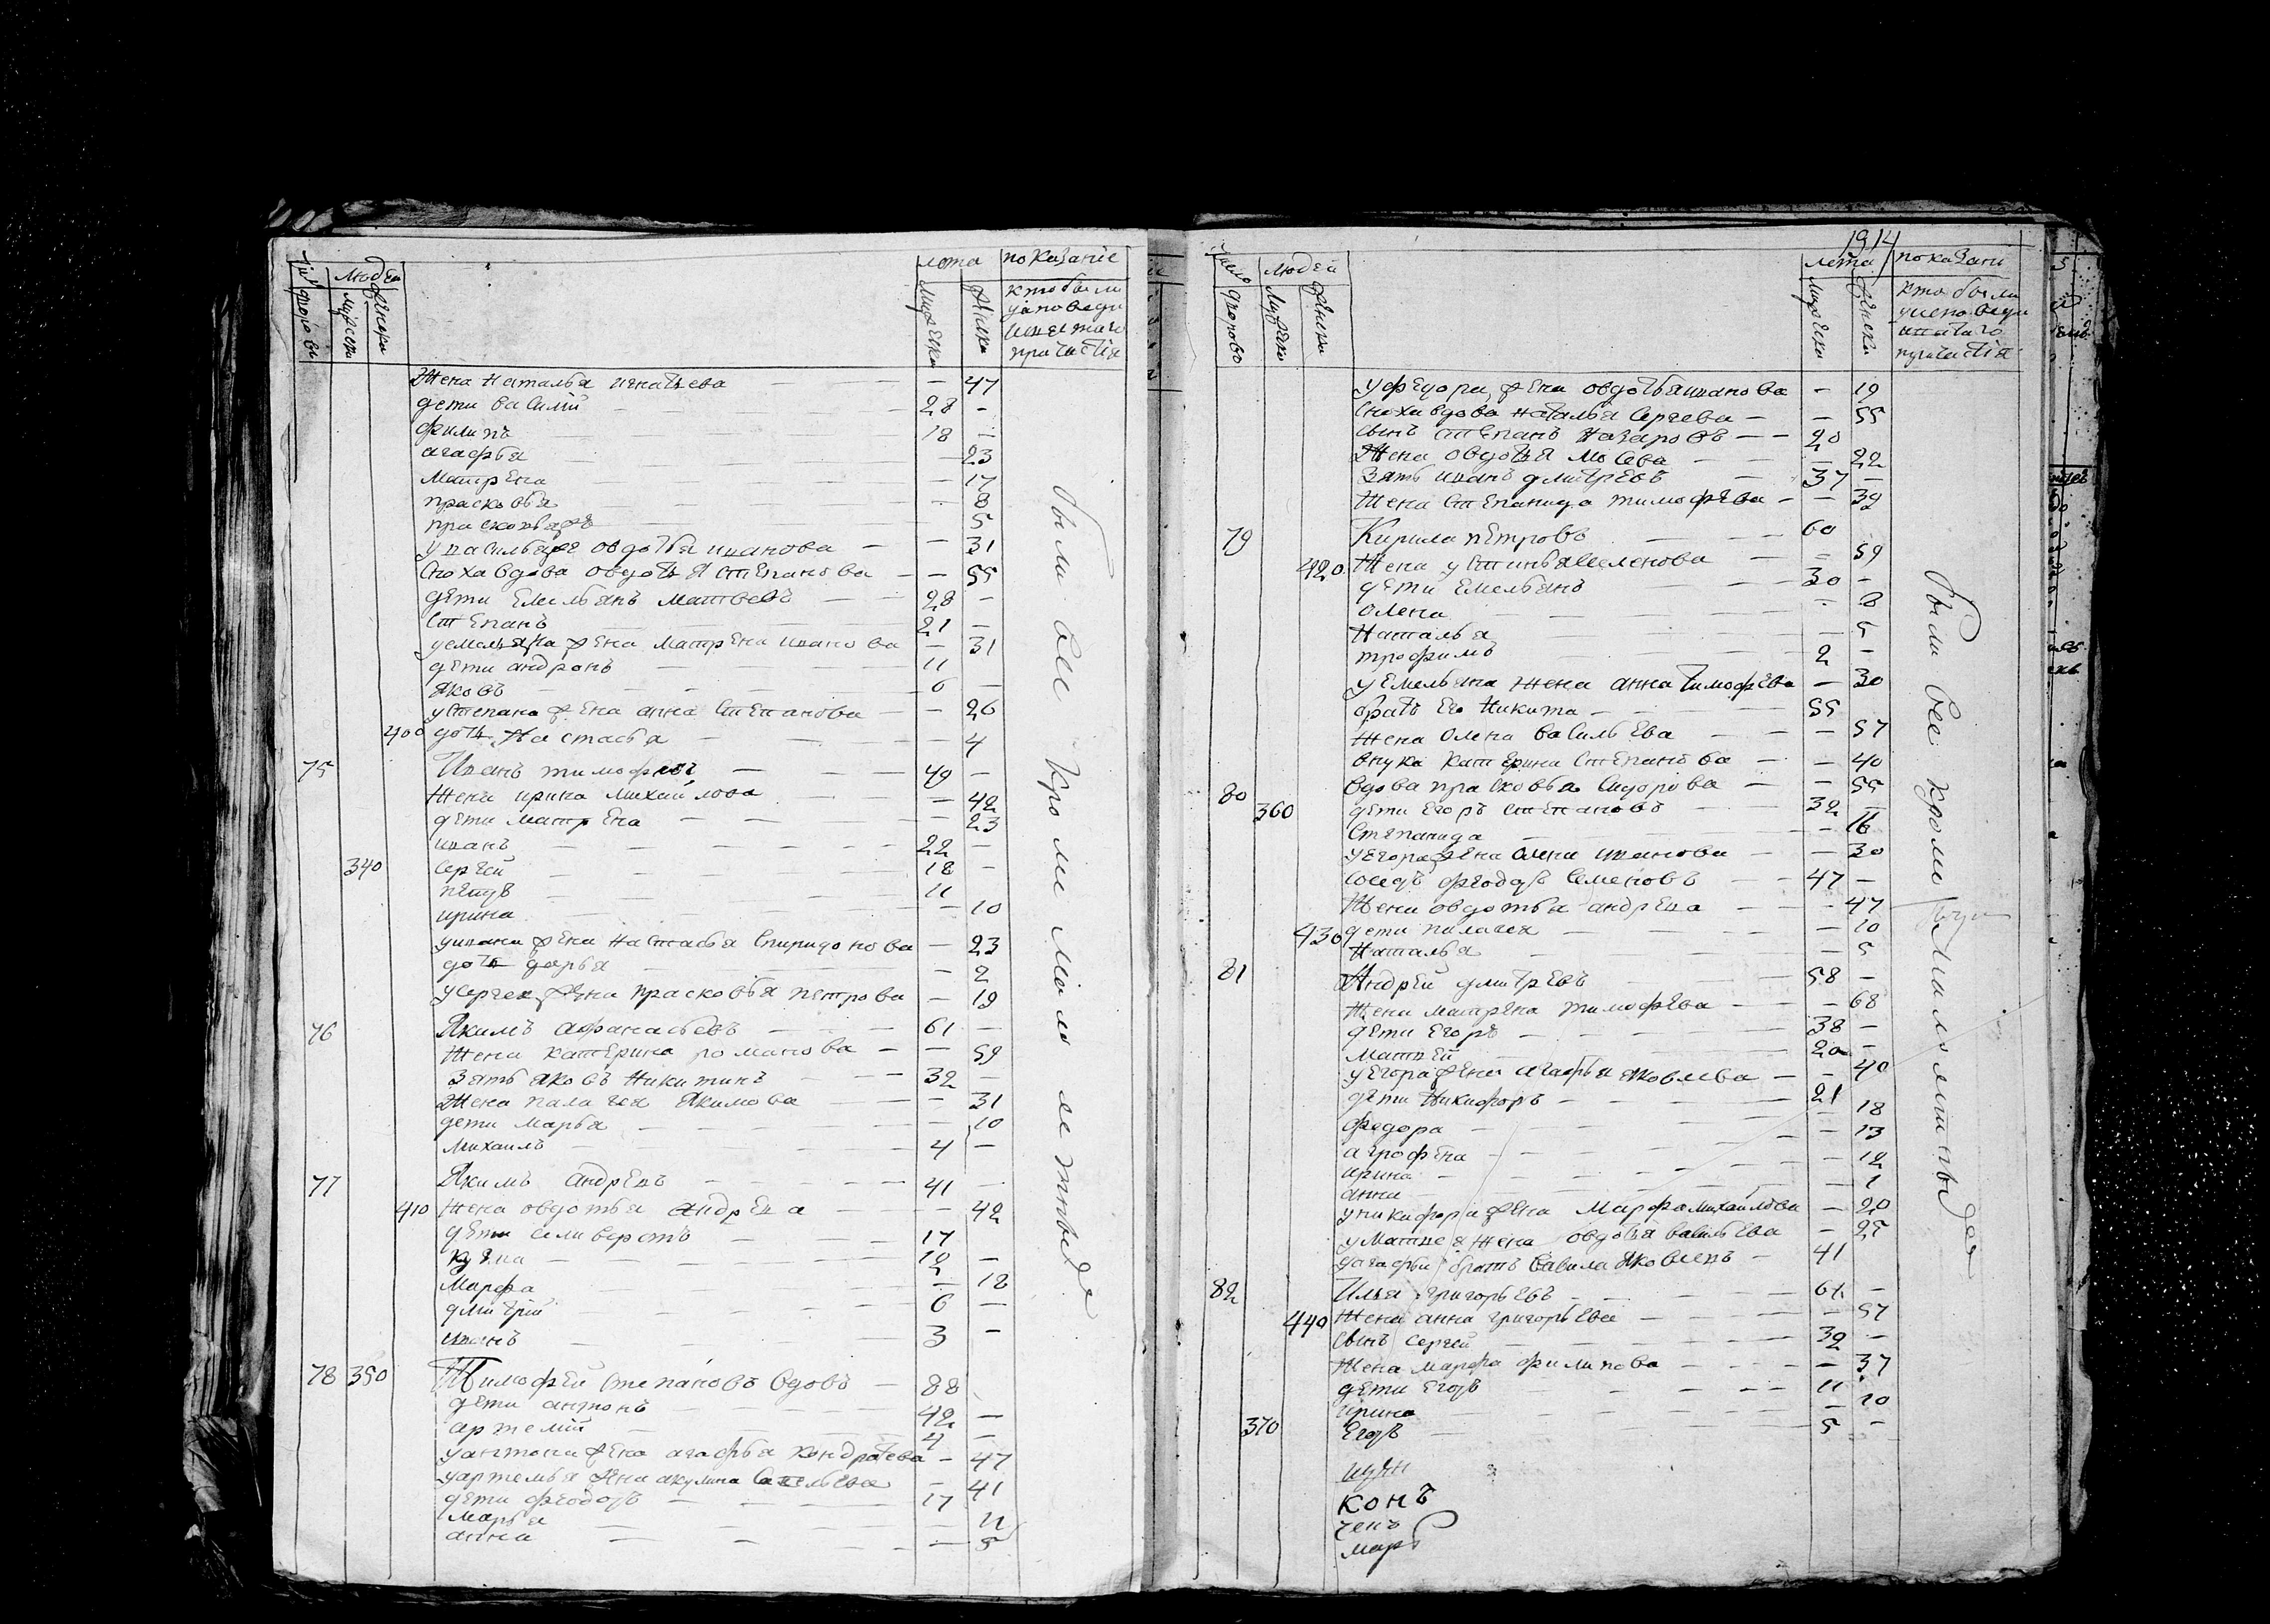 людей
лета
показание
кто были
Жена Наталья игнатьева — — 47
дети василий — 28 —
филипъ — 18 —
агафья — 23
Матрена — 17
прасковья — 8
5
овдотья иванова — — 31
Сноха вдова овдотья степанова — — 55
дети Емельянъ Матвеевъ — 28 —
Степанъ 21 —
уемельяна жена Матрена иванова — 31
дети андронъ — 11
яковъ — 6 —
устепана жена анна степанова — — 26
400 дочь Настасья — 4
75 Иванъ тимофеевъ — 49 —
Жена ирина михайлова — 42
дети матрена — 23
иванъ — 22 —
340 сергей — 18 —
петръ — 11
ирина — 10
уивана жена настасья спиридонова — 23
дочь дарья — 2
усергея жена прасковья петрова — 19
76 Якимъ афанасьевъ — 61 —
Жена катерина романова — — 59
Зять яковъ Никитинъ — 32 —
Жена палагея якимова — 31
дети марья — 10
михаилъ — 4 —
77 Якимъ андреевъ — 41 —
410 Жена овдотья андреева — 42
дети селиверстъ — 17
12 —
Марфа — 12
дмитрий — 6 —
иванъ — 3 —
78 350 Тимофей степановъ вдовъ — 88
дети антонъ — 42 —
артемий —
уантона жена агафья кондратева — 47
уартемья жена акулина савельева — 41
дети феодоръ — 17
марья — 11
анна — 5
были все кроме малолетных
1914
людей
лета
кто были
уфедора жена овдотья иванова — 19
сноха вдова наталья сергева — — 55
сынъ степанъ Назаровъ — — 20
Жена овдотья мосева — 22
Зять иванъ дмитревъ — 37 —
Жена степанида тимофева — — 39
79 Кирила петровъ — 60
420 Жена устинья семенова — 59
дети емельянъ — 30 —
олена — 8
Наталья — 5
трофимъ 2 —
уемельяна жена анна тимофева — 30
братъ его Никита — 55
Жена олена васильева — — 57
внука катерина — — 40
80 вдова прасковья сидорова — — 55
360 дети егоръ степановъ — 32 —
степанида — 16
уегора жена олена иванова — — 30
соседъ феодоръ семеновъ — 47 —
Жена овдотья андреева — 47
430 дети палагея — 10
Наталья — 5
81 Андрей дмитревъ — 58 —
Жена матрена тимофева — — 68
дети егоръ — 38 —
матвей 20 —
уегора жена агафья яковлева — — 40
дети Никифоръ — 21
федора — 18
агрофена — 13
ирина — 12
анна — 1
уникифора жена Марфа михайлова — 20
уматвея жена овдотья васильева — 25
уагафьи братъ вавила яковлевъ — 41
82 Илья григорьевъ — 61 —
440 Жена анна григорьева — 57
сынъ сергей — 39 —
Жена марфа филипова — — 37
дети егоръ — 11
ирина — 10
370 егоръ — 5 —
были все кроме малолетных
конъ
ченъ